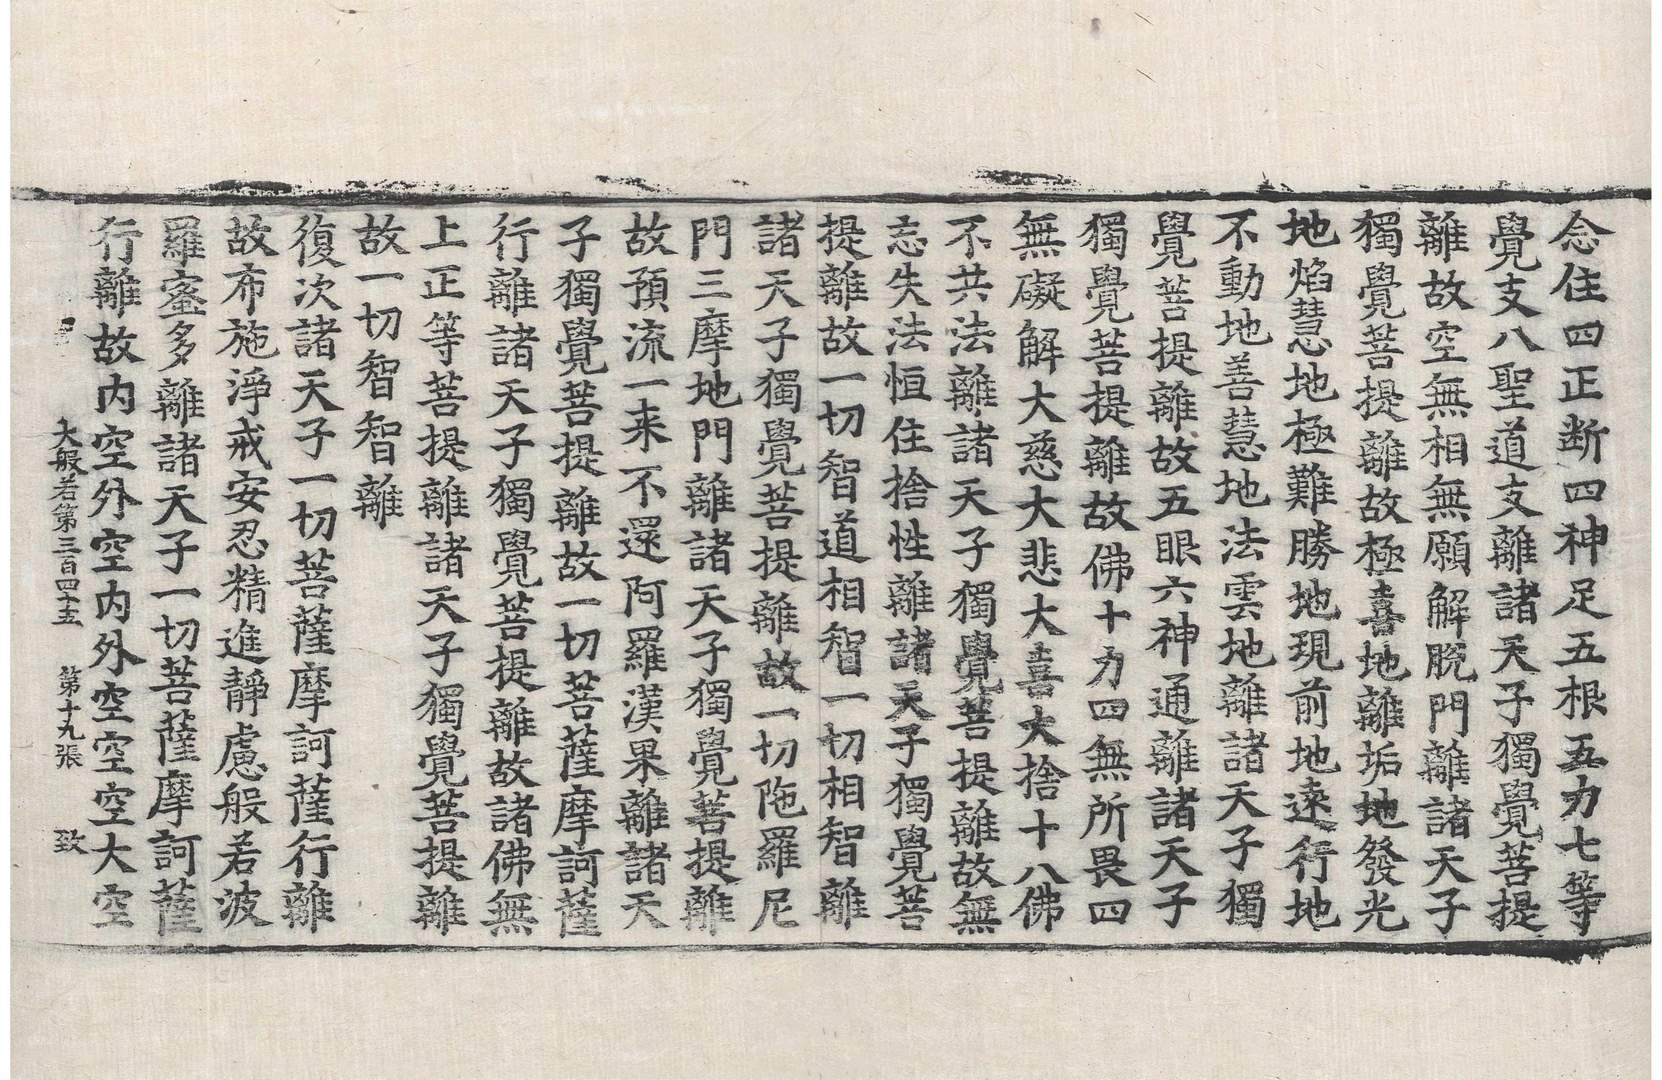 念住四正断四神足五根五力七等
覺支八聖道支離諸天子獨覺菩提
離故空無相無願解脫門離諸天子
獨覺菩提離故極喜地離垢地發光
地焰慧地極難勝地現前地遠行地
不動地善慧地法雲地離諸天子獨
覺菩提離故五眼六神通離諸天子
獨覺菩提離故佛十力四無所畏四
無礙解大慈大悲大喜大捨十八佛
不共法離諸天子獨覺菩提離故無
忘失法恒住捨性離諸天子獨覺菩
提離故一切智道相智一切相智離
諸天子獨覺菩提離故一切陁羅尼
門三摩地門離諸天子獨覺菩提離
故預流一来不還阿羅漢果離諸天
子獨覺菩提離故一切菩薩摩訶薩
行離諸天子獨覺菩提離故諸佛無
上正等菩提離諸天子獨覺菩提離
故一切智智離
復次諸天子一切菩薩摩訶薩行離
故布施淨戒安忍精進靜慮般若波
羅蜜多離諸天子一切菩薩摩訶薩
行離故内空外空内外空空空大空
大般若第三百四十五 第十九張 致